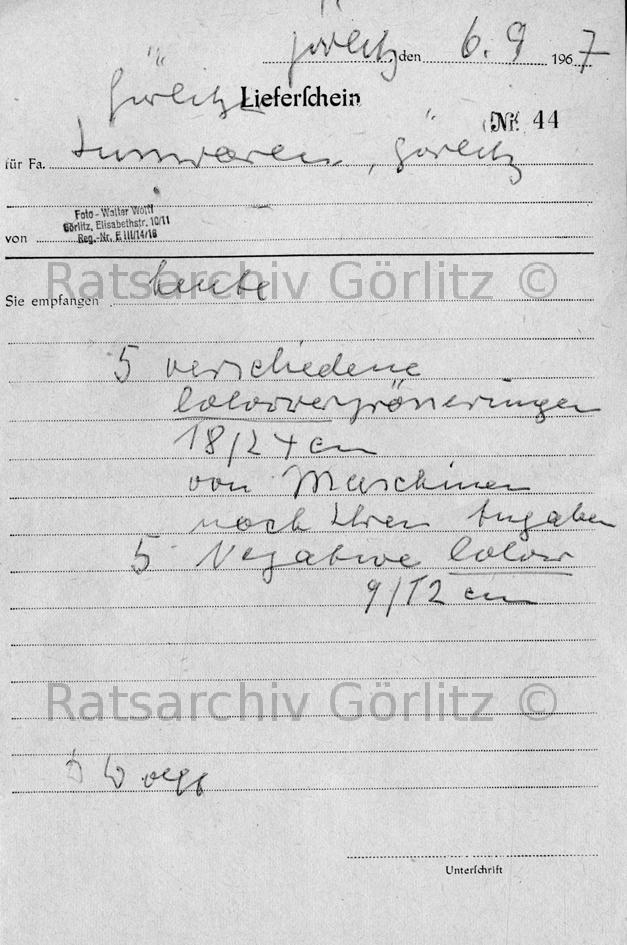 Görlitz den 6. 9 1967
Görlitz
Lieferschein
Nr. 44
für Fa. , Görlitz
Foto - Walter Wolff
Görlitz, Elisabethstr. 10/11
Reg.-Nr. E III/14/16
von
Ratsarchiv Görlitz ©
Sie empfangen heute
5 verschiedene
colorvergrösseringen
18/24 cm
von Maschinen
nach Ihren Angaben
5 Negative color
9/12 cm
Ratsarchiv Görlitz ©
Wolff
Unterschrift